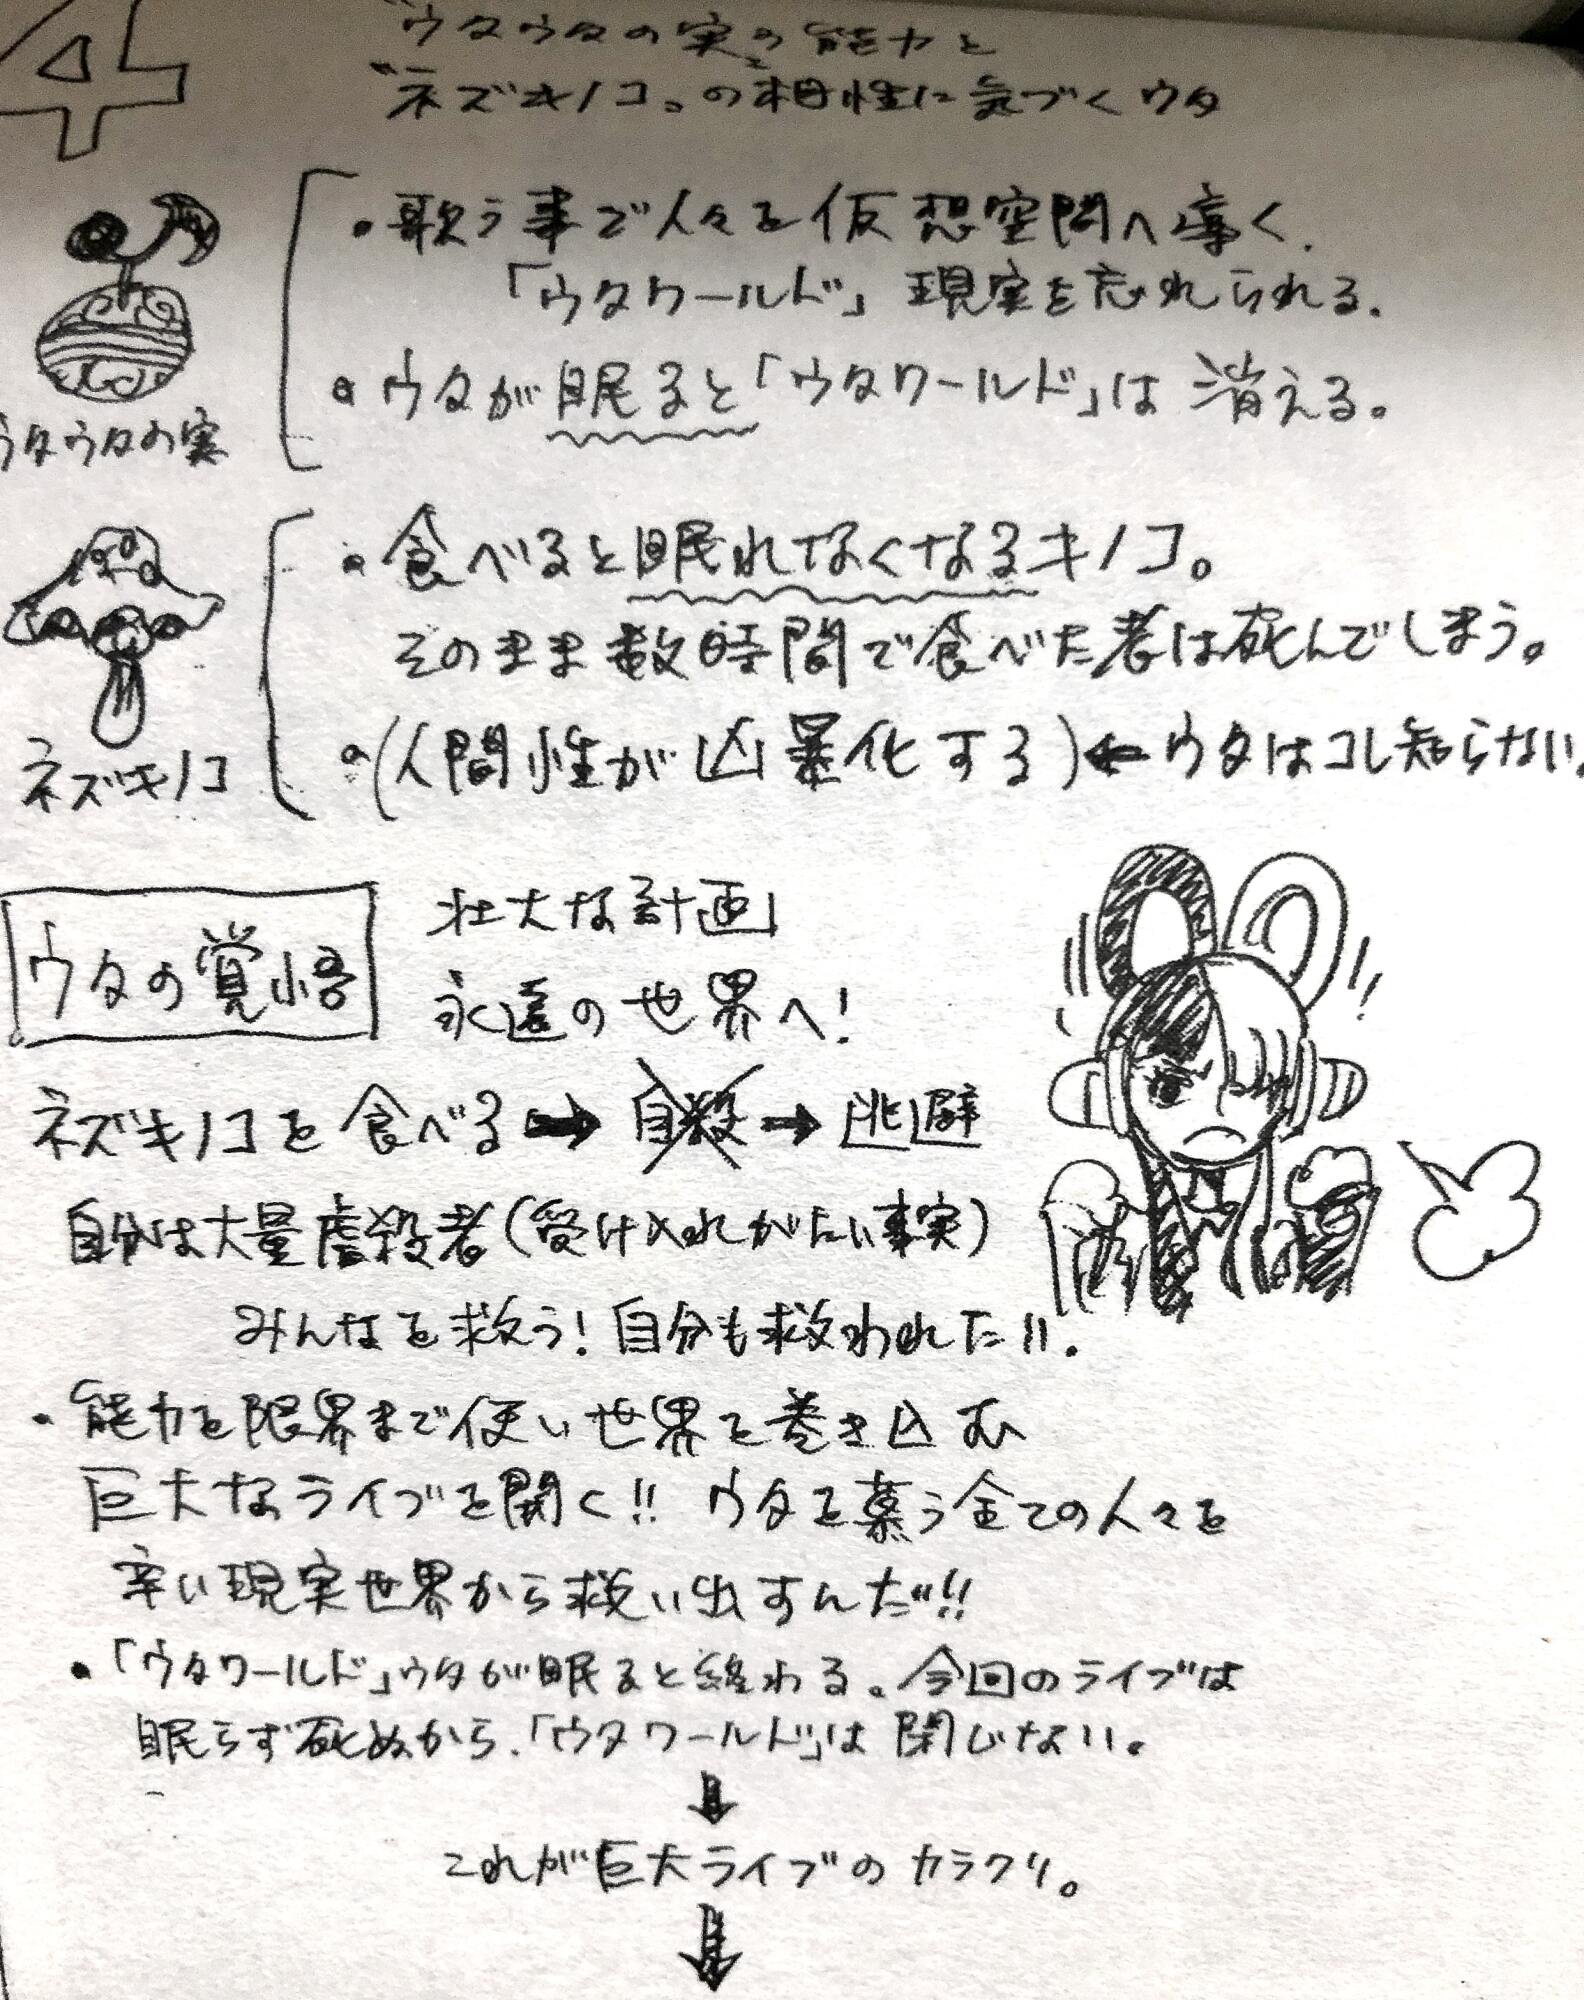 4
“ウタウタの実”の能力と
“ネズキノコ”の相性に気づくウタ
・歌う事で人々を仮想空間へ導く.
「ウタワールド」現実を忘れられる.
・ウタが眠ると「ウタワールド」は消える。
ウタウタの実
・食べると眠れなくなるキノコ。
そのまま数時間で食べた者は死んでしまう。
・(人間性が凶暴化する)←ウタはコレ知らない.
ネズキノコ
ウタの覚悟
壮大な計画
永遠の世界へ!
ネズキノコを食べる→自殺→逃避
自分は大量虐殺者(受け入れがたい事実)
みんなを救う!自分も救われたい.
・能力を限界まで使い世界を巻き込む
巨大なライブを開く!!ウタを慕う全ての人々を
辛い現実世界から救い出すんだ!!
・「ウタワールド」ウタが眠ると終わる。今回のライブは
眠らず死ぬから.「ウタワールド」は閉じない。
↓
これが巨大ライブのカラクリ。
↓